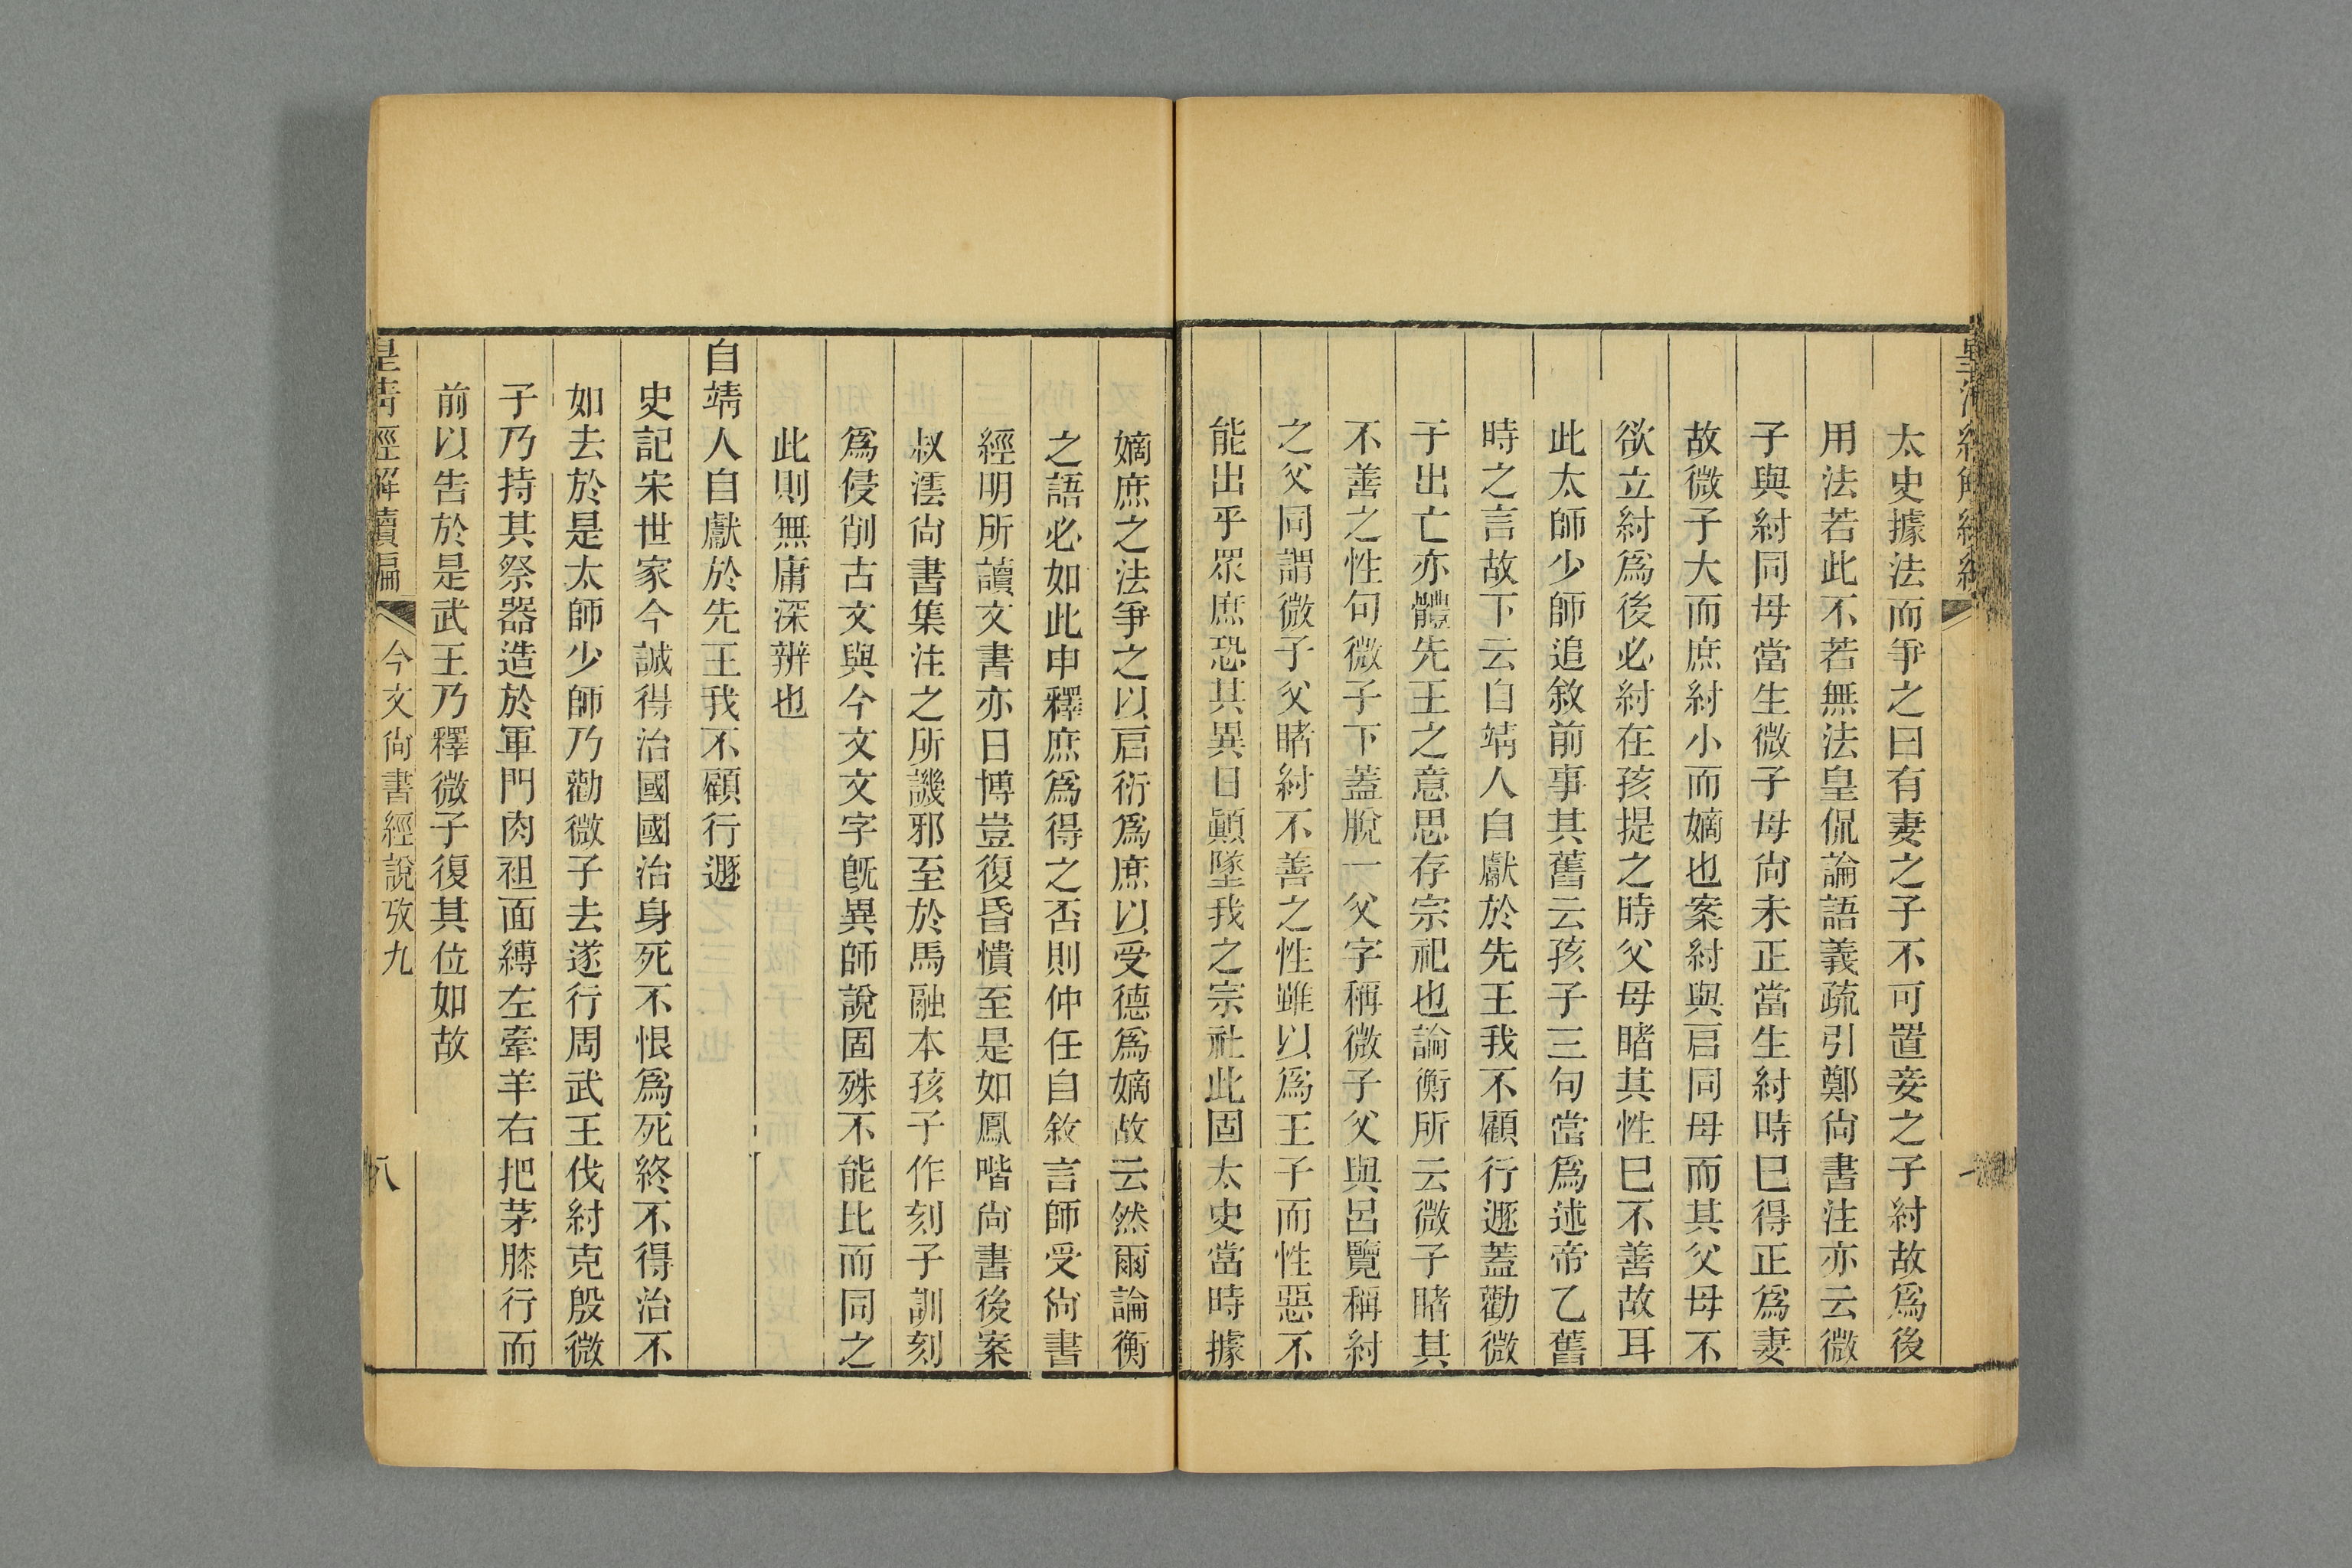 太史據法而爭之曰有妻之子不可置妾之子紂故爲後
用法若此不若無法皇侃論語義疏引鄭尙書注亦云微
子與紂同母當生微子母尙未正當生紂時巳得正爲妻
故微子大而庶紂小而嫡也案紂與启同母而其父母不
欲立紂爲後必紂在孩提之時父母睹其性巳不善故耳
此太師少師追敘前事其舊云孩子三句當爲述帝乙舊
時之言故下云自靖人自獻於先王我不顧行遯蓋勸微
子出亡亦體先王之意思存宗祀也論衡所云微子睹其
不善之性句微子下蓋脫一父字稱微子父與呂覽稱紂
之父同謂微子父睹紂不善之性雖以爲王子而性惡不
能出乎眾庶恐其異日顚墜我之宗社此固太史當時據
嫡庶之法爭之以启衍爲庶以受德爲嫡故云然爾論衡
之語必如此申釋庶爲得之否則仲任自敘言師受尙書
經明所讀文書亦日博豈復昏憒至是如鳳喈尙書後案
叔澐尙書集注之所譏邪至於馬融本孩子作刻子訓刻
爲侵削古文與今文文字旣異師說固殊不能比而同之
此則無庸深辨也
自靖人自獻於先王我不顧行遯
史記宋世家今誠得治國國治身死不恨爲死終不得治不
如去於是太師少師乃勸微子去遂行周武王伐紂克殷微
子乃持其祭器造於軍門肉袒面縛左牽羊右把茅膝行而
前以告於是武王乃釋微子復其位如故
皇清經解續編
今文尙書經說攷九
八